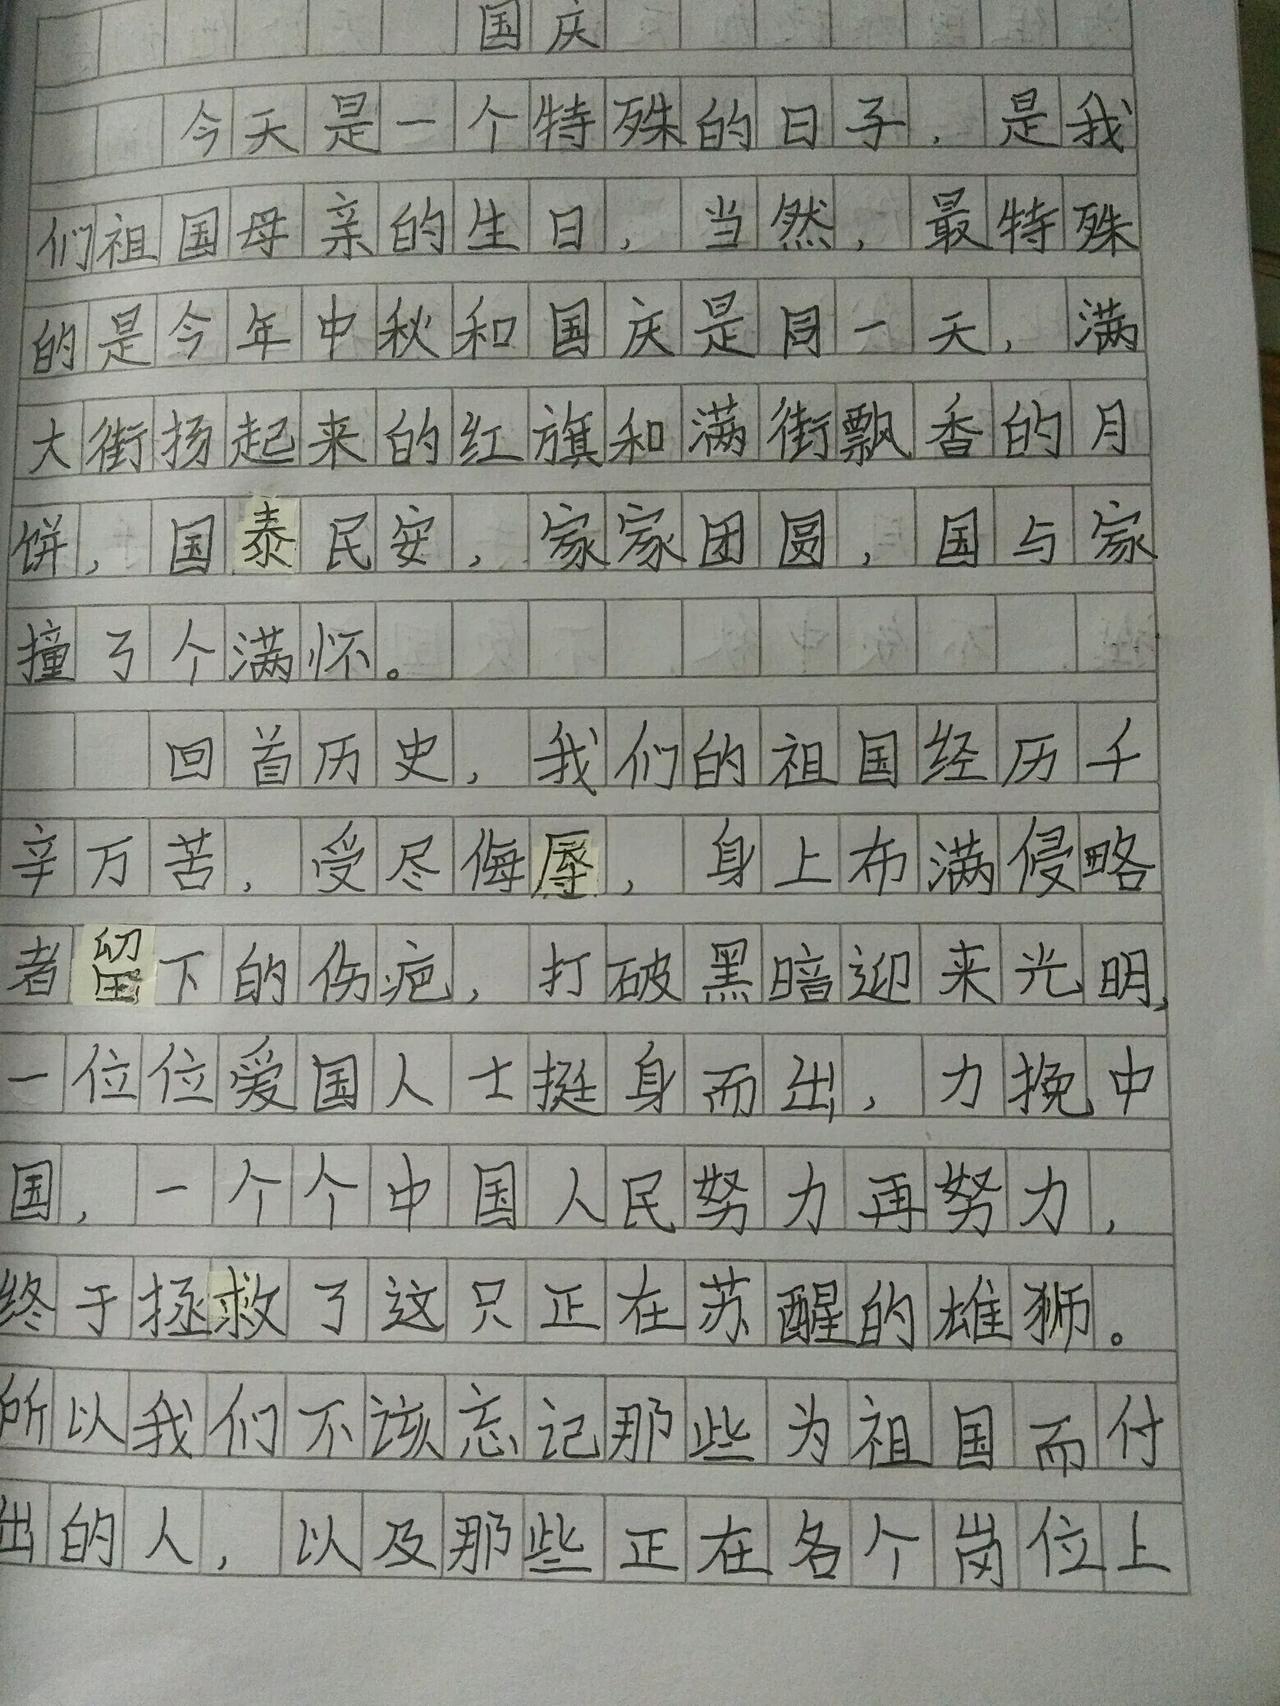 国庆
今天是一个特殊的日子，是我
们祖国母亲的生日，当然，最特殊
的是今年中秋和国庆是同一天，满
大街扬起来的红旗和满街飘香的月
饼，国泰民安，家家团圆，国与家
撞了个满怀。
回首历史，我们的祖国经历千
辛万苦，受尽侮辱，身上布满侵略
者留下的伤疤，打破黑暗迎来光明，
一位位爱国人士挺身而出，力挽中
国，一个个中国人民努力再努力，
终于拯救了这只正在苏醒的雄狮。
所以我们不该忘记那些为祖国而付
出的人，以及那些正在各个岗位上